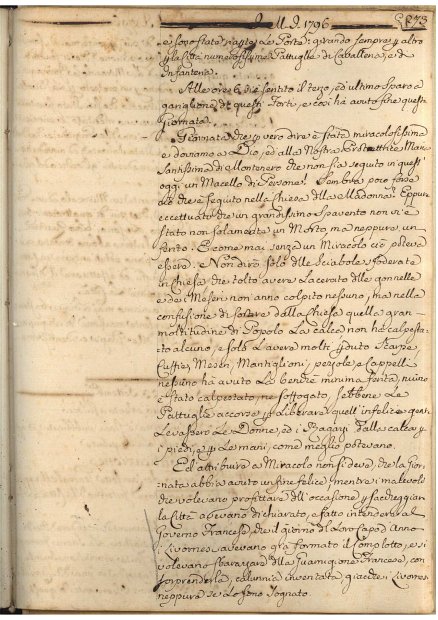 1796
e sono stato
le Porte: girando sempre p altro
p la Città numerosissime Pattuglie di Cavalleria, e di
Infanteria.
Alle ore 6 si è sentito il terzo, ed ultimo sparo a
di questi Forti, e così ha avuto fine questa
Giornata.
Giornata che p vero dire è stata miracolosissima
e dovamo a Dio, ed alla Nostra Protettrice Maria
Santissima di Montenero che non sia seguito in quest'
oggi un Macello di Persone. Sembra poco forse
ciò che è seguito nella Chiesa della Madonna? Eppure
eccettuato che un grandissimo spavento non vi è
stato non solamente un Morto, ma neppure un
ferito. E come mai senza un Miracolo ciò poteva
essere. Non dirò solo delle Sciabole sfoderate
in Chiesa che tolto avere lacerato delle gonnelle
e dei Meseri non anno colpito nessuno, ma nella
confusione di sortire dalla Chiesa quella gran
moltitudine di Popolo la calca non ha calpesta-
to alcuno, e solo l'avere molti pduto Scarpe
Cuffie, Meseri, Mantiglioni, pezzole e Cappelli
nessuno ha avuto la benche minima ferita, niuno
è stato calpestato, ne soffogato, sebbene le
Pattuglie accorse p liberare quell' infelice gente
levassero le Donne, ed i Ragazzi dalla calca p
i piedi, e p le mani, come meglio potevano.
Ed attribuire a Miracolo non si deve, che la Gior-
nata abbia avuto un fine felice, mentre i malevoli
che volevano profittare dell' occasione p saccheggiar
la Città avevano dichiarato, e fatto intendere al
Governo Francese, che il giorno di loro Capo d' Anno
i Livornesi avevano già formato il complotto, e si
volevano sbarazzare della Guarnigione Francese, con
sorprenderla, calunnia inventata giacche i Livornesi
neppure se lo sono sognato.